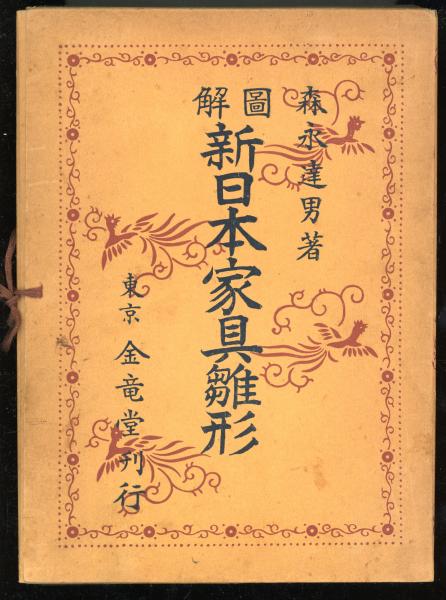 森永達男著
圖解
新日本家具雛形
東京 金竜堂刊行